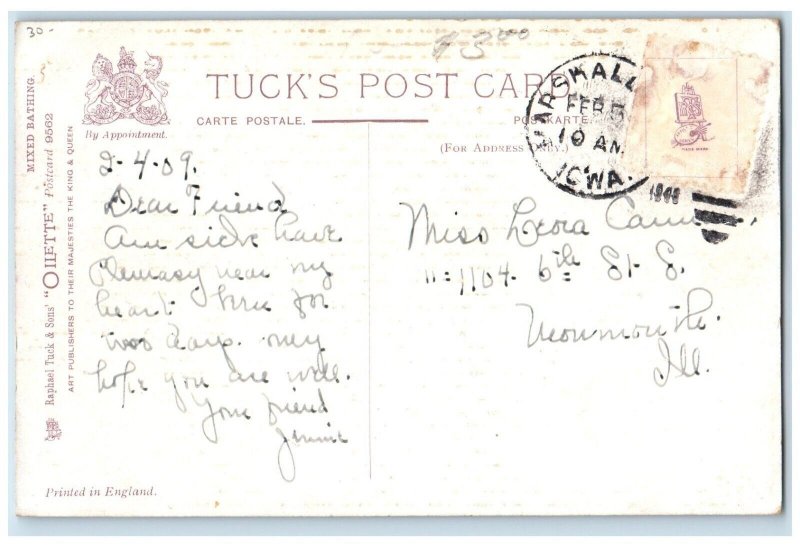 30-
$3.00
TUCK'S POST CARD.
CARTE POSTALE.
POSTKARTE.
(FOR ADDRESS ONLY.)
By Appointment.
MIXED BATHING.
Raphael Tuck & Sons' "OILETTE" Postcard 9562
ART PUBLISHERS TO THEIR MAJESTIES THE KING & QUEEN
MARSHALL
FEB 5
10 AM
IOWA.
2-4-09.
Dear Friend
Am sick have
Plurasy near my
heart for
two days. my
hope you are well.
Your friend
Jennie
Miss Leora
1104. 6th St S.
Monmouth.
Ill.
Printed in England.